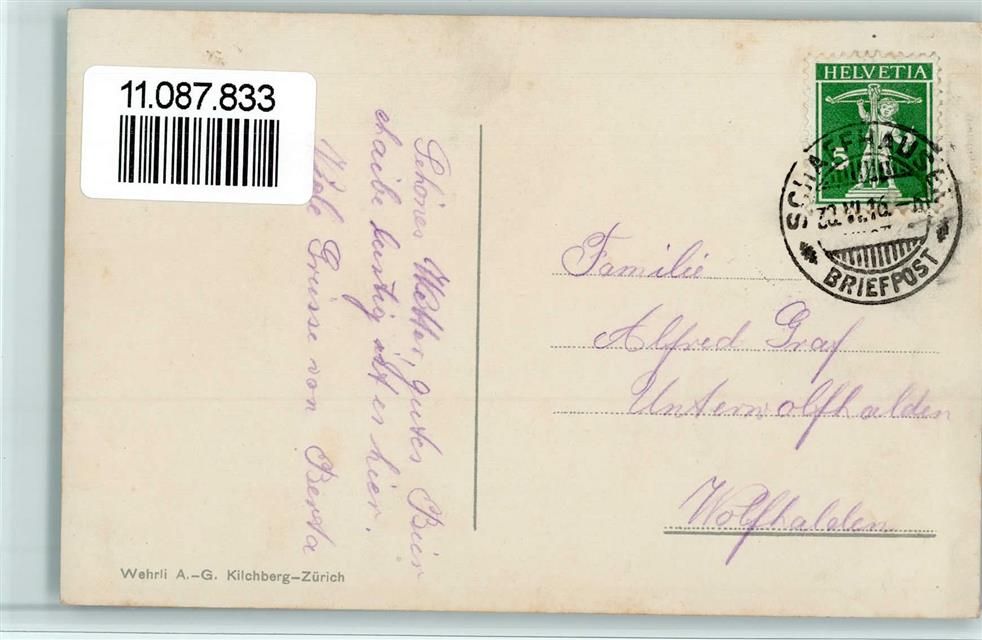 11.087.833
HELVETIA
5
SCHAFFHAUSEN
BRIEFPOST
Schönes Wetter, gutes Bier
chaibe lustig ist es hier.
Viele Grüsse von Berta
Familie
Alfred Graf
Unterwolfhalden
Wolfhalden
Wehrli A.-G. Kilchberg-Zürich